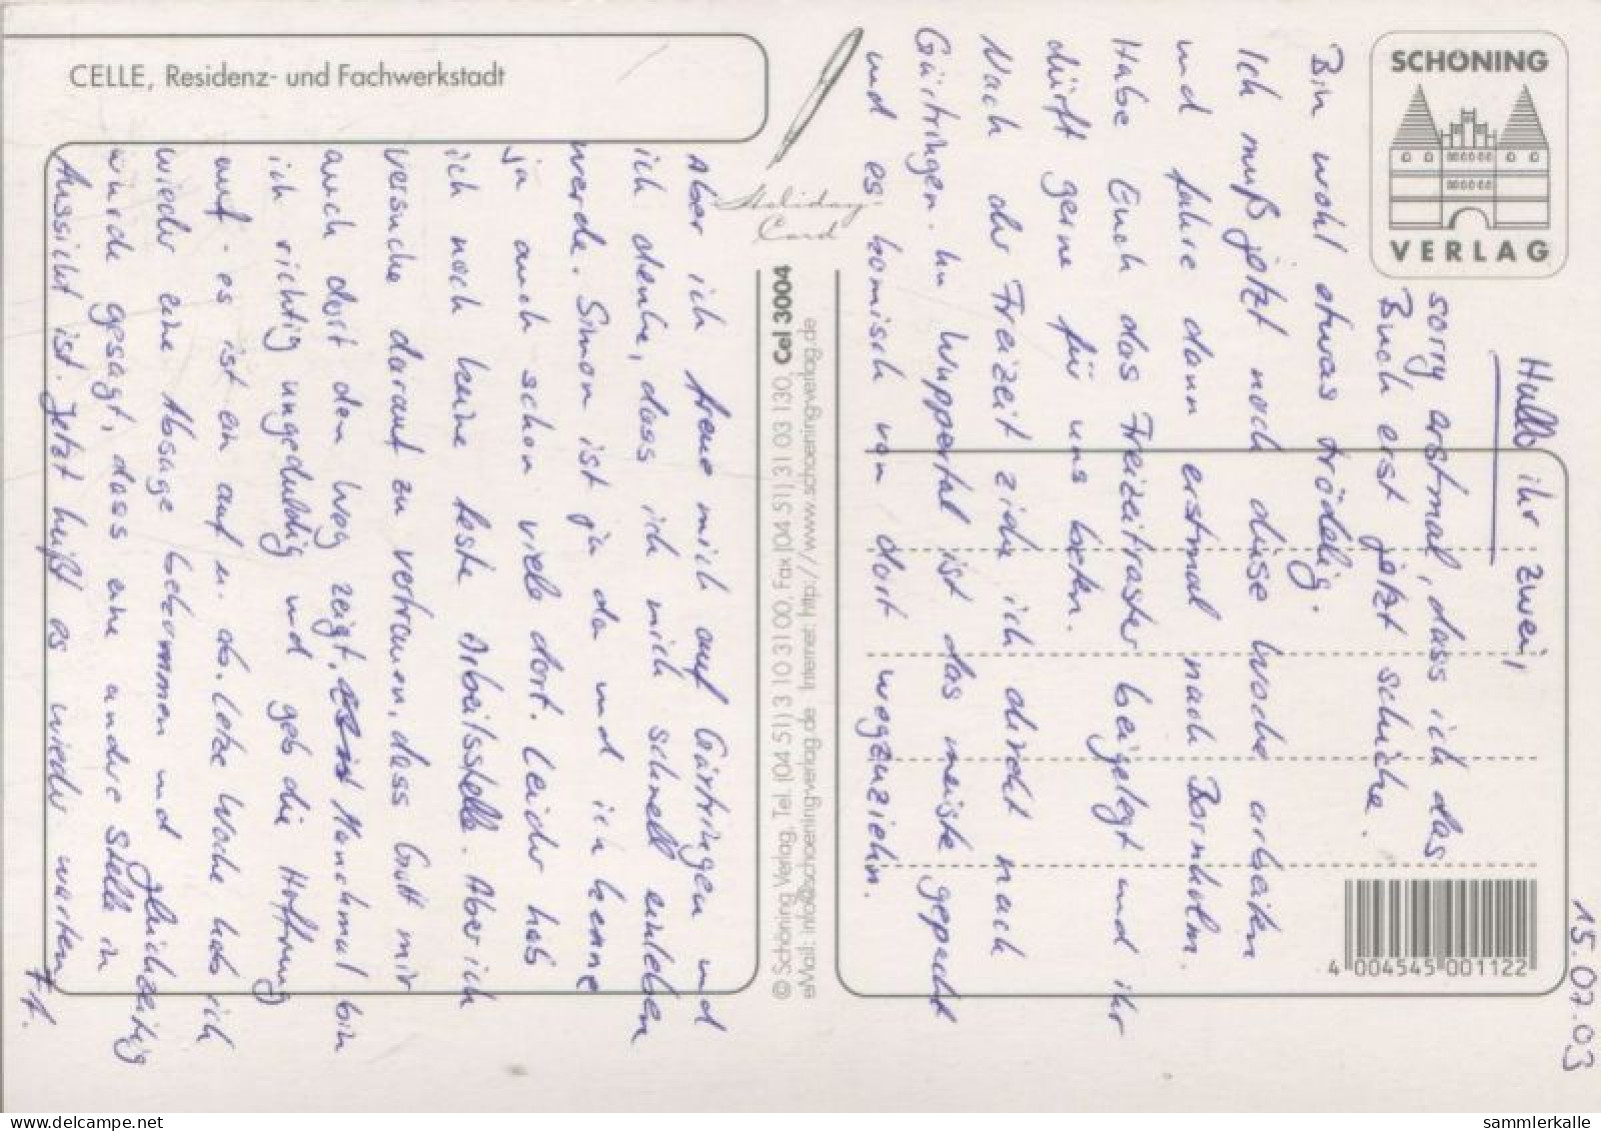 CELLE, Residenz- und Fachwerkstadt
Holiday
Card
SCHÖNING
VERLAG
© Schöning Verlag, Tel. (04 51) 3 10 31 00, Fax (04 51) 31 03 130, Cel 3004
eMail: info@schoening-verlag.de Internet: http://www.schoening-verlag.de
4 004545 001122
15.07.03
Hallo ihr zwei,
sorry erstmal, dass ich das
Buch erst jetzt schicke.
Bin wohl etwas trödelig.
Ich muß jetzt noch diese Woche arbeiten
und fahre dann erstmal nach Bornholm.
Habe Euch das Freizeitraster beigelegt und ihr
dürft gerne für uns beten.
Nach der Freizeit ziehe ich direkt nach
Gärtringen. In Wuppertal ist das meiste gepackt
und es komisch von dort wegzuziehn.
Aber ich freue mich auf Gärtringen und
ich denke, dass ich mich schnell einleben
werde. Simon ist ja da und ich kenne
ja auch schon viele dort. Leider hab
ich noch keine feste Arbeitsstelle. Aber ich
versuche darauf zu vertrauen, dass Gott mir
auch dort den Weg zeigt. Manchmal bin
ich richtig ungeduldig und geb die Hoffnung
auf - es ist ein auf u. ab. Letze Woche hab ich
wieder eine Absage bekommen und gleichzeitig
wurde gesagt, dass eine andre Stelle in
Aussicht ist. Jetzt heißt es wieder warten
sammlerkalle